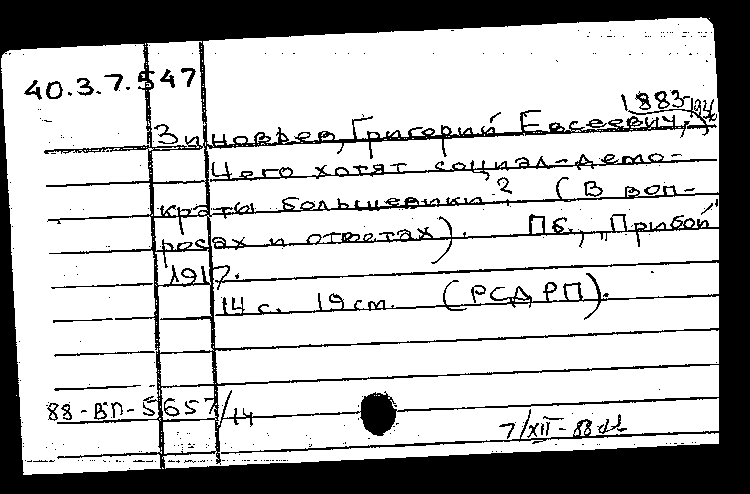 40.3.7.547
1883-
Зиновьев, Григорий Евсеевич,
Чего хотят социал-демо-
краты большевики? (В воп-
росах и ответах). Пб., „Прибой"
1917.
14 с. 19 см. (РСДРП).
88-ВП-5657/14
7/XII-88